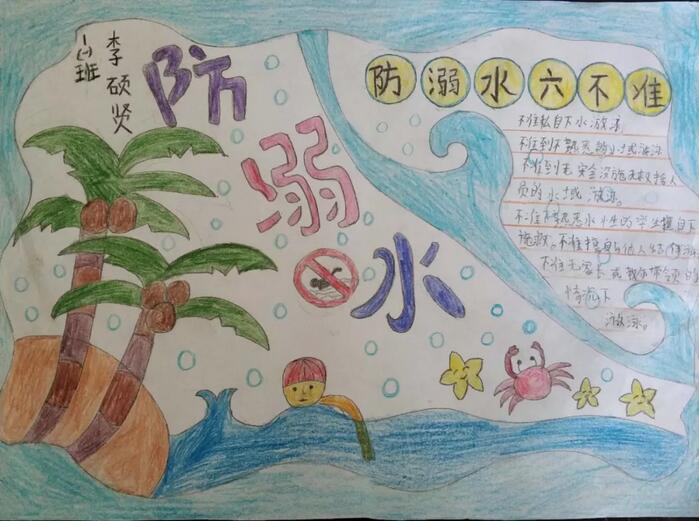 一(3)班
李硕贤
防
溺
水
防溺水六不准
不准私自下水游泳
不准到不熟悉的水域游泳
不准到无安全设施无救护人
员的水域游泳。
不准不熟悉水性的学生擅自下
施救。不准擅自与他人结伴游泳
不准无家长或教师带领的
情况下
游泳。